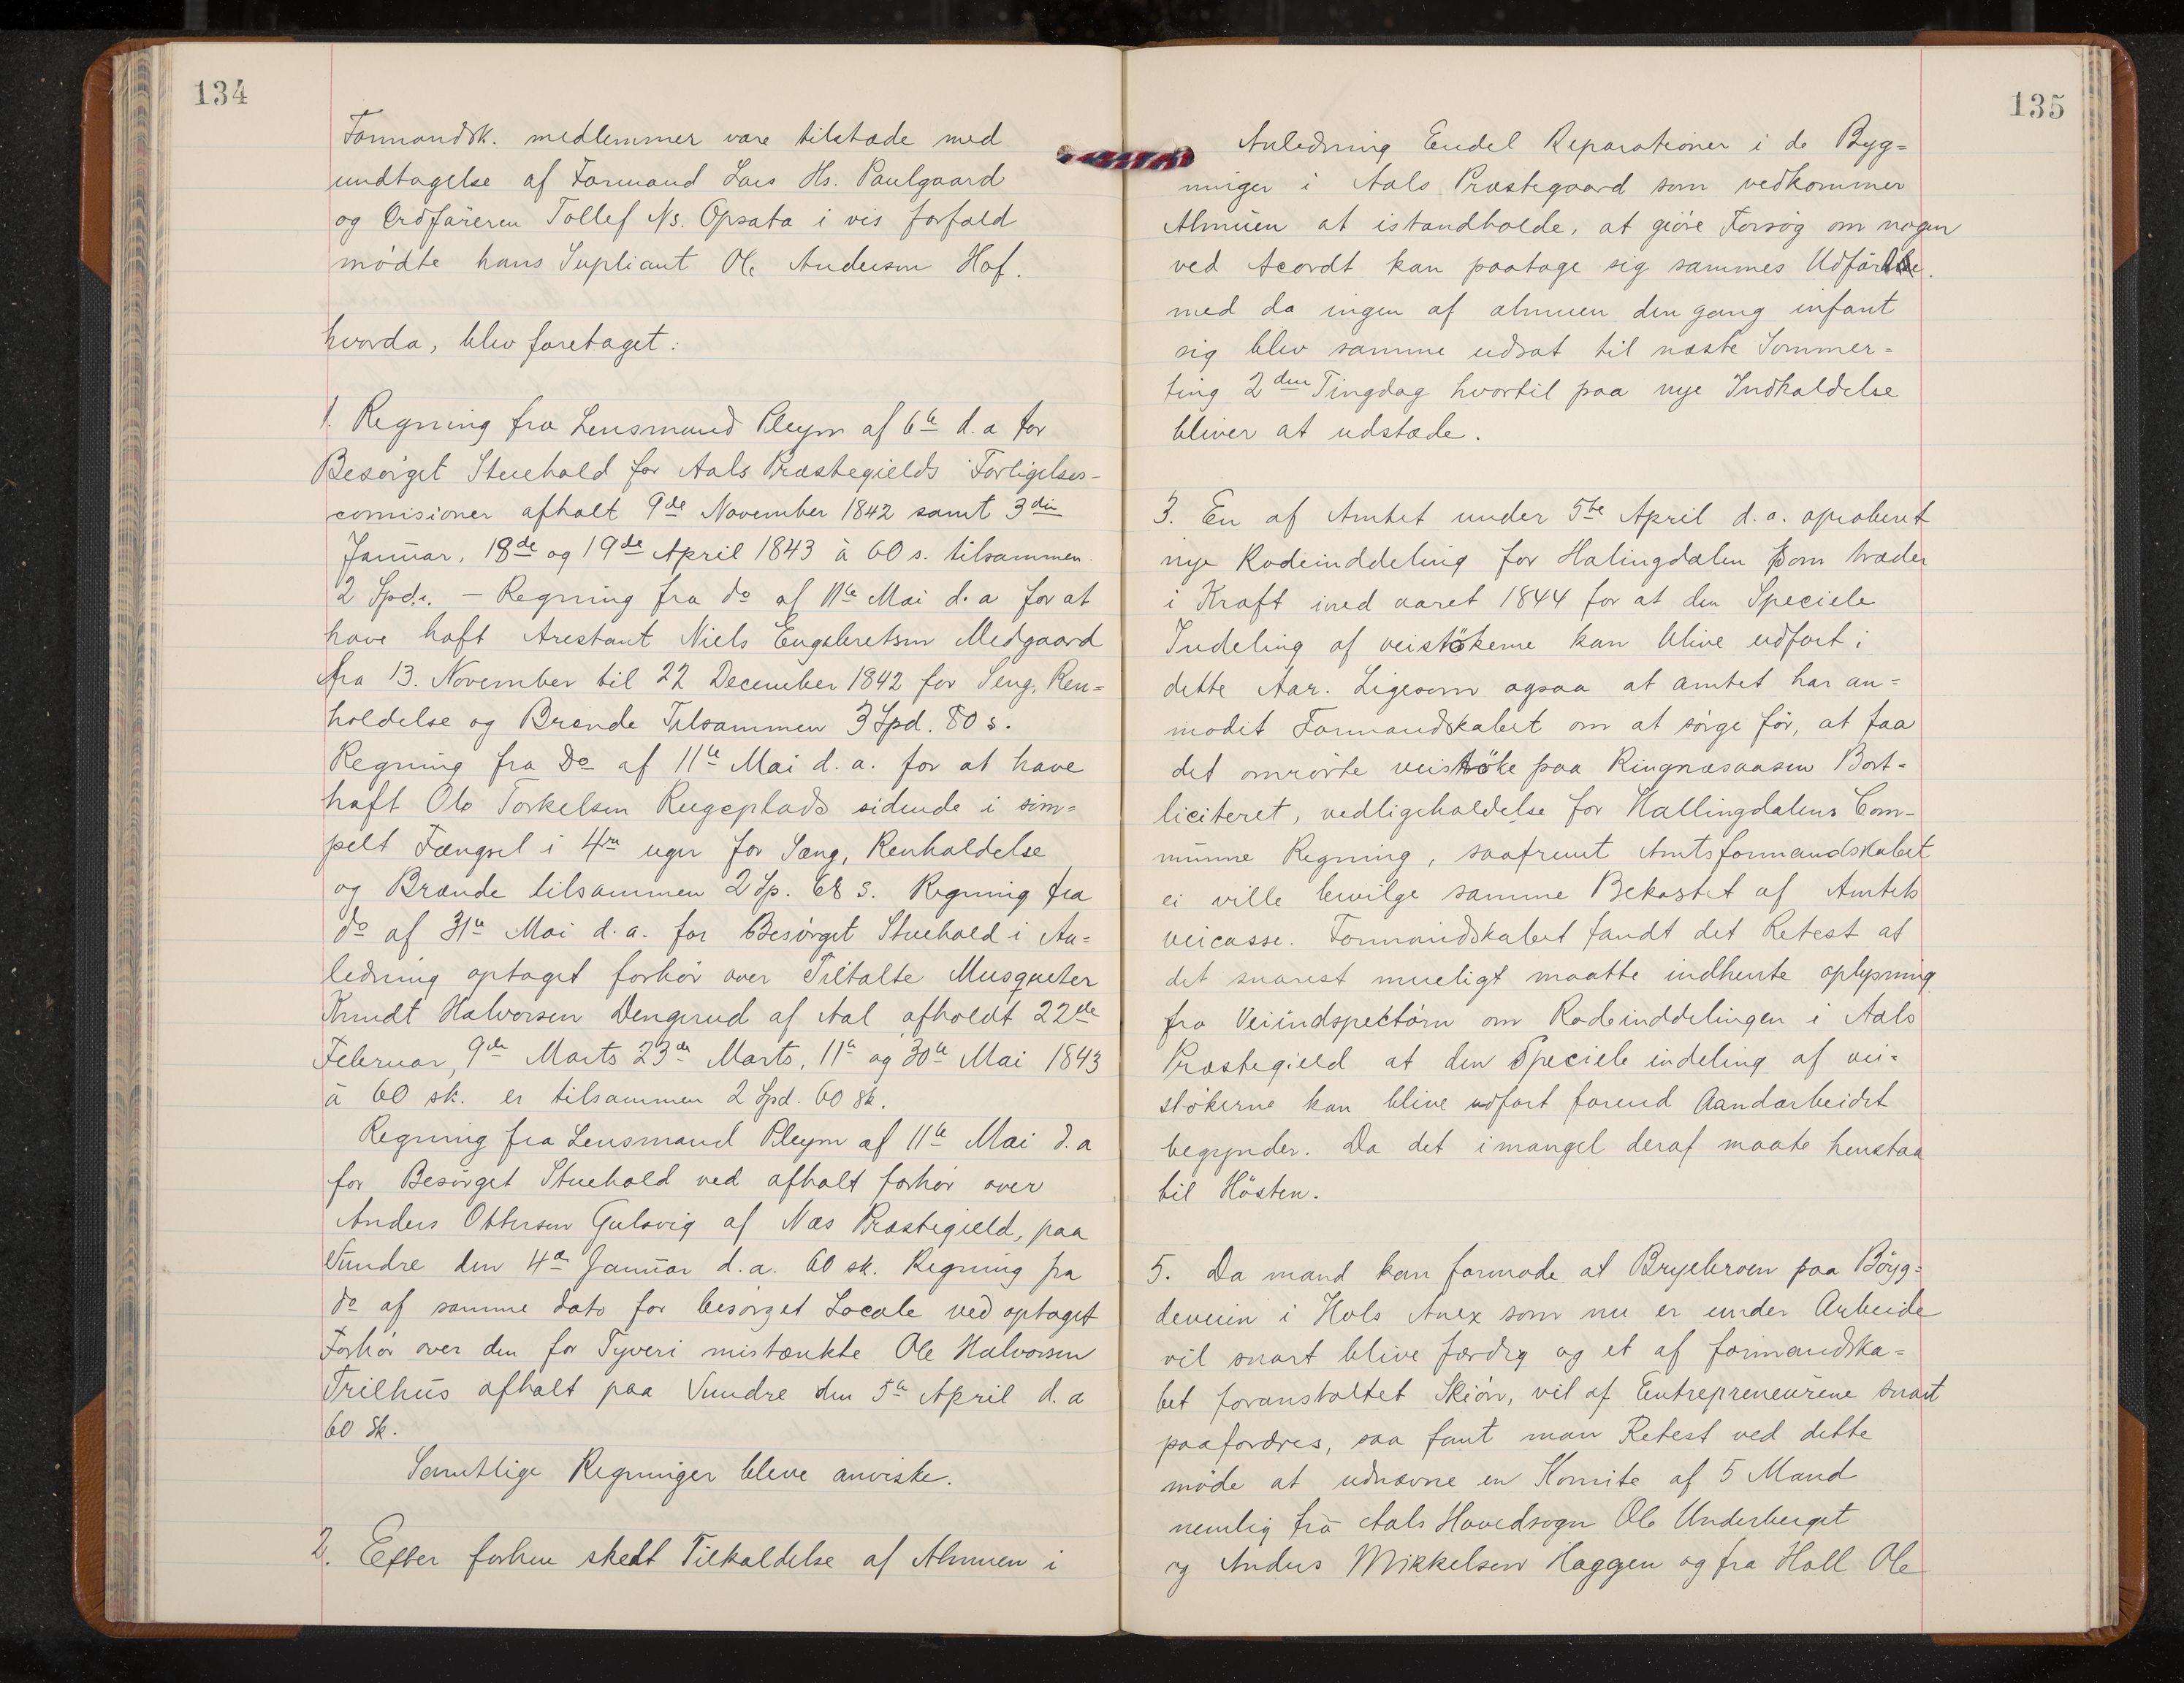 134
Formandsk. medlemmer vare tilstæde med
undtagelse af Formand Lars Hs. Paulgaard
og Ordføreren Tollef Ns. Opsata i vis forfald
mødte hans Supliant Ole Andersen Hof.
hvorda, blev foretaget:
1. Regning fra Lensmand Pleym af 6te d. a for
Besørget Stuehold for Aals Præstegields Forligelses-
comisioner afholt 9de November 1842 samt 3die
Januar, 18de og 19de April 1843 à 60 s. tilsammen
2 Spd. - Regning fra do af 11te Mai d. a for at
have haft Arestant Niels Engebretsen Medgaard
fra 13. November til 22 December 1842 for Seng, Ren=
holdelse og Brænde Tilsammen 3 Spd. 80 s.
Regning fra Do af 11te Mai d. a. for at have
haft Ole Torkelsen Rugeplads sidende i sim=
pelt Fængsel i 4re uger for Sæng, Renholdelse
og Brænde tilsammen 2 Sp. 68 s. Regning fra
do af 31te Mai d. a. for Besørget Stuehold i An=
ledning optaget forhør over Tiltalte Musqueter
Knudt Halvorsen Dengerud af Aal afholdt 22de
Februar, 9de Marts 23de Marts, 11te og 30te Mai 1843
à 60 sk. er tilsammen 2 Spd. 60 sk.
Regning fra Lensmand Pleym af 11te Mai d. a
for Besørget Stuehold ved afholt forhør over
Anders Ottersen Gulsvig af Næs Præstegield, paa
Sundre den 4de Januar d. a. 60 sk. Regning fra
do af samme dato for besørget Locale ved optaget
Forhør over den for Tyveri mistænkte Ole Halvorsen
Trilhus afholt paa Sundre den 5te April d. a
60 sk.
Samtlige Regninger bleve anviste.
2. Efter forhen skedt Tilkaldelse af Almuen i
135
Anledning Endel Reparationer i de Byg=
ninger i Aals Præstegaard som vedkommer
Almuen at istandholde, at giøre Forsøg om nogen
ved Acordt kan paatage sig sammes Udførelse.
med da ingen af almuen den gang infant
sig blev samme udsat til næste Sommer=
ting 2den Tingdag hvortil paa nye Indkaldelse
bliver at udstæde.
3. En af Amtet under 5te April d. a. aproberet
nye Rodeinddeling for Halingdalen som træder
i Kraft ined aaret 1844 for at den Speciele
Indeling af veistökerne kan blive udfort i
dette Aar. Ligesom ogsaa at amtet har an=
modet Formandskabet om at sørge før, at faa
det omrørte veistöke paa Ringnæsaasen Bort-
liciteret, vedligeholdelse for Hallingdalens Com-
mune Regning, saafremt Amtsformandskabet
ei ville bevilge samme Bekostet af Amtets
veicasse. Formandskabet fandt det Retest at
det snarest mueligt maatte indhente oplysning
fra Veiindspectørn om Rodeinddelingen i Aals
Præstegield at den Speciele indeling af vei=
støkerne kan blive udfort forend Aandarbeidet
begynder. Da det i mangel deraf maate henstaa
til Høsten.
5. Da mand kan formode at Bryebroen paa Böyg=
deveien i Hols Anex som nu er under Arbeide
vil snart blive færdig og et af formandska=
bet foranstaltet Skiøn, vil af Entrepreneurene snart
paafordres, saa fant man Retest ved dette
møde at udnævne en Komite af 5 Mand
nemlig frå Aals Hovedsogn Ole Underberget
og Anders Mikkelsen Haggen og fra Holl Ole